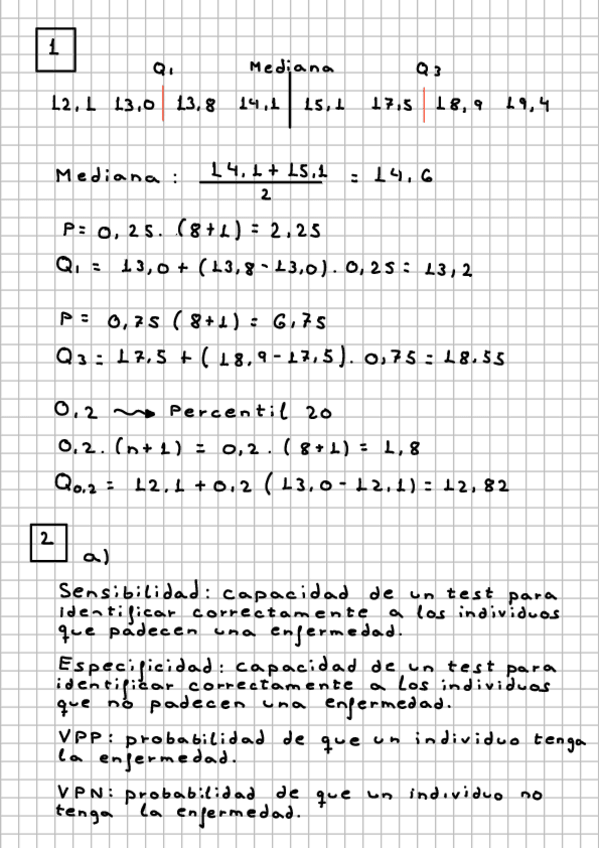 1
Q1 Mediana Q3
12,1 13,0 13,8 14,1 15,1 17,5 18,9 19,4
Mediana : (14,1 + 15,1) / 2 = 14,6
P= 0,25. (8+1) = 2,25
Q1 = 13,0 + (13,8-13,0). 0,25 = 13,2
P= 0,75 (8+1) = 6,75
Q3 = 17,5 + (18,9-17,5). 0,75 = 18.55
0,2 ⇝ Percentil 20
0,2. (n+1) = 0,2. (8+1) = 1,8
Q0,2 = 12,1 + 0,2 (13,0-12,1) = 12,82
2
a)
Sensibilidad: capacidad de un test para
identificar correctamente a los individuos
que padecen una enfermedad.
Especificidad: capacidad de un test para
identificar correctamente a los individuos
que no padecen una enfermedad.
VPP: probabilidad de que un individuo tenga
la enfermedad.
VPN: probabilidad de que un individuo no
tenga la enfermedad.